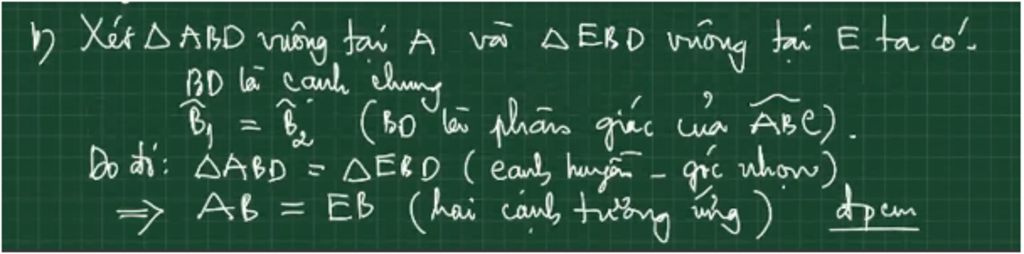 b) Xét △ABD vuông tại A và △EBD vuông tại E ta có.
BD là cạnh chung
B̂₁ = B̂₂ (BD là phân giác của ABC).
Do đó: △ABD = △EBD (cạnh huyền - góc nhọn)
⇒ AB = EB (hai cạnh tương ứng) đpcm